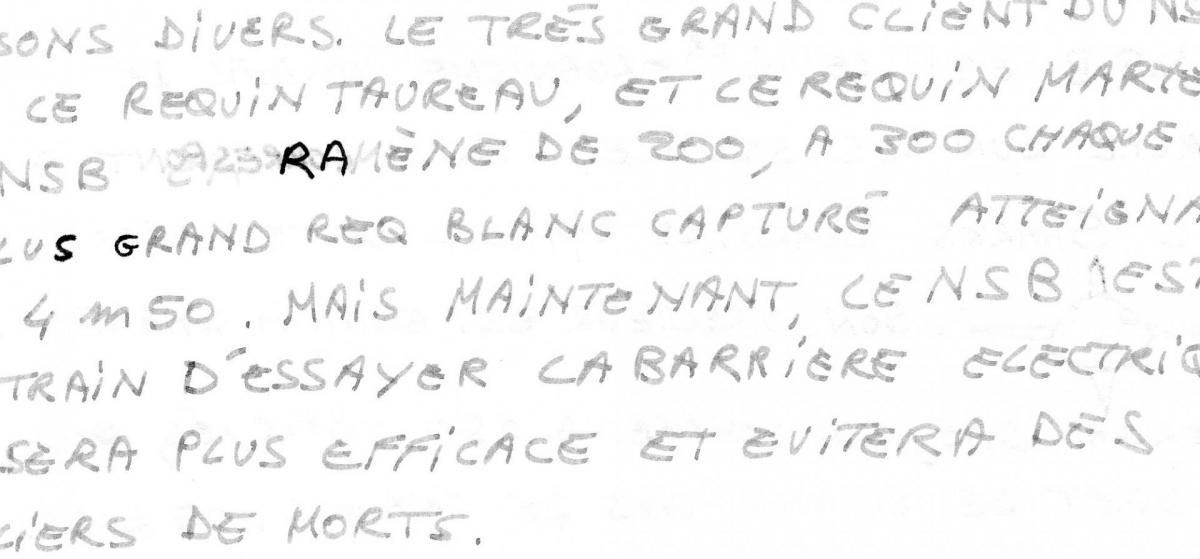 SONS DIVERS. LE TRÉS GRAND CLIENT DU NS
CE REQUIN TAUREAU, ET CE REQUIN MARTE
NSB RAMÈNE DE 200, A 300 CHAQUE
LUS GRAND REQ BLANC CAPTURÉ ATTEIGNA
4 m 50. MAIS MAINTENANT, LE NSB EST
TRAIN D'ESSAYER LA BARRIERE ELECTRIQ
SERA PLUS EFFICACE ET EVITERA DES
LIERS DE MORTS.